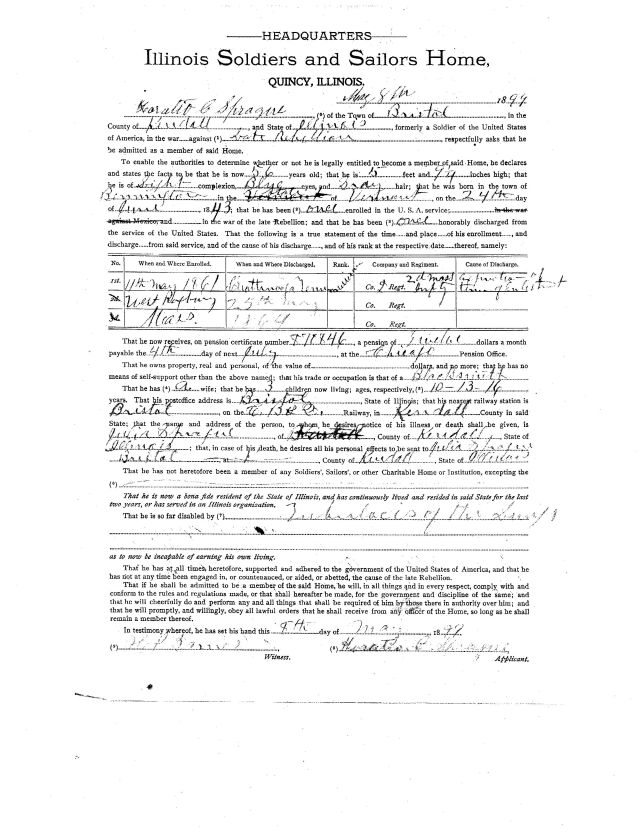 HEADQUARTERS
Illinois Soldiers and Sailors Home,
QUINCY, ILLINOIS.
May 8th 1899
Horatio C Sprague (*) of the Town of Bristol, in the
County of Kendall, and State of Illinois, formerly a Soldier of the United States
of America, in the war against (*) Late Rebellion respectfully asks that he
be admitted as a member of said Home.
To enable the authorities to determine whether or not he is legally entitled to become a member of said Home, he declares
and states the facts to be that he is now 56 years old; that he is 5 feet and inches high; that
he is of Light complexion, Blue eyes, and Gray hair; that he was born in the town of
Bennington in the of Vermont on the 24th day
of 1843; that he has been (*) once enrolled in the U. S. A. service; in the war
against Mexico, and in the war of the late Rebellion; and that he has been (*) once honorably discharged from
the service of the United States. That the following is a true statement of the time and place of his enrollment, and
discharge from said service, and of the cause of his discharge, and of his rank at the respective date thereof, namely:
No. When and Where Enrolled. When and Where Discharged. Rank. Company and Regiment. Cause of Discharge.
1st. 11th May 1961 Tenn Co. Regt. 2d Mass expiration of
2d. West Roxbury 25th May Co. Regt. time of enlistment
3d. Mass 1864 Co. Regt.
That he now receives, on pension certificate number 871846, a pension of Twelve dollars a month
payable the 4th day of next July, at the Chicago Pension Office.
That he owns property, real and personal, of the value of dollars, and no more; that he has no
means of self-support other than the above named; that his trade or occupation is that of a Blacksmith
That he has (*) a wife; that he has 3 children now living; ages, respectively, (*) 10-13-16
years. That his postoffice address is Bristol, State of Illinois; that his nearest railway station is
Bristol, on the Railway, in Kendall County in said
State; that the name and address of the person, to whom he desires notice of his illness or death shall be given, is
Julia Sprague of County of Kendall, State of
Illinois; that, in case of his death, he desires all his personal effects to be sent to Julia Sprague
Bristol, County of Kendall, State of Illinois
That he has not heretofore been a member of any Soldiers', Sailors', or other Charitable Home or Institution, excepting the
(*)
That he is now a bona fide resident of the State of Illinois, and has continuously lived and resided in said State for the last
two years, or has served in an Illinois organization.
That he is so far disabled by (*) of the Lungs
as to now be incapable of earning his own living.
That he has at all times, heretofore, supported and adhered to the government of the United States of America, and that he
has not at any time been engaged in, or countenanced, or aided, or abetted, the cause of the late Rebellion.
That if he shall be admitted to be a member of the said Home, he will, in all things and in every respect, comply with and
conform to the rules and regulations made, or that shall hereafter be made, for the government and discipline of the same; and
that he will cheerfully do and perform any and all things that shall be required of him by those there in authority over him; and
that he will promptly, and willingly, obey all lawful orders that he shall receive from any officer of the Home, so long as he shall
remain a member thereof.
In testimony whereof, he has set his hand this 8th day of May, 1899
(*) (*) Horatio C. Sprague
Witness. Applicant.